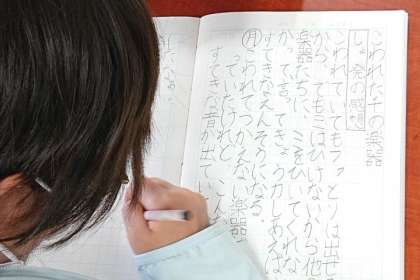 こわれた千の楽器
し、発の感想
こわれていてもファとソは出せ
から、でもミはひけないから他
楽器たちに、ミをひいてくれな
かって言ってきょう力しあえば
すてきなえんそうになる。
月こわれてつかえない楽器
っていたけれど、こんな
すてきな音が出てい